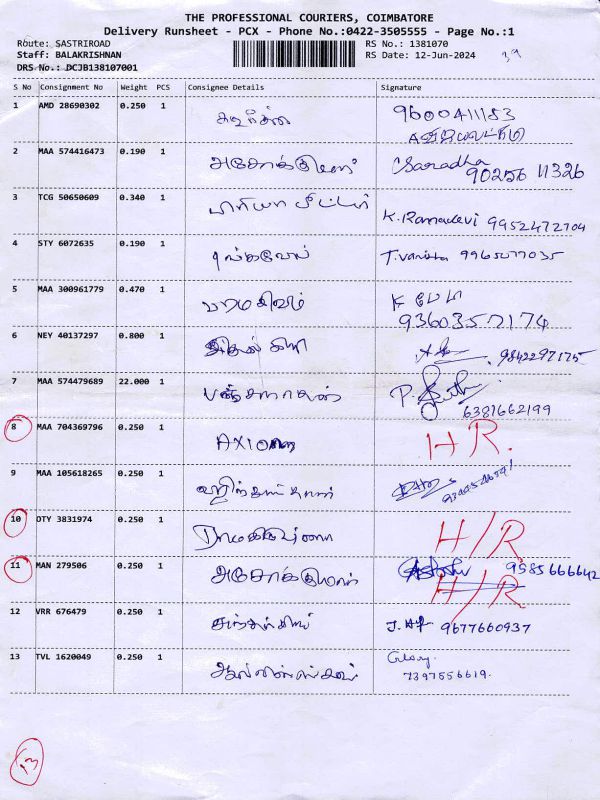 THE PROFESSIONAL COURIERS, COIMBATORE
Delivery Runsheet - PCX - Phone No.:0422-3505555 - Page No.:1
Route: SASTRIROAD RS No.: 1381070
Staff: BALAKRISHNAN RS Date: 12-Jun-2024 39
DRS No.: DCJB138107001
S No Consignment No Weight PCS Consignee Details Signature
1 AMD 28690302 0.250 1 9600411183
2 MAA 574416473 0.190 1 அசோக்குமார் Saradha
90256 11326
3 TCG 50650609 0.340 1 K. Ramadevi 9952472704
4 STY 6072635 0.190 1 தங்கவேல் T. Vanitha 9965077035
5 MAA 300961779 0.470 1 பரமசிவம் K
9360357174
6 NEY 40137297 0.800 1 9842297175
7 MAA 574479689 22.000 1 P.
6381662199
8 MAA 704369796 0.250 1 AXIOM H R.
9 MAA 105618265 0.250 1
10 OTY 3831974 0.250 1 H/R
11 MAN 279506 0.250 1 அசோக்குமார் 9585666642
H/R
12 VRR 676479 0.250 1 J. 9677660937
13 TVL 1620049 0.250 1 Glory.
7397556619.
13